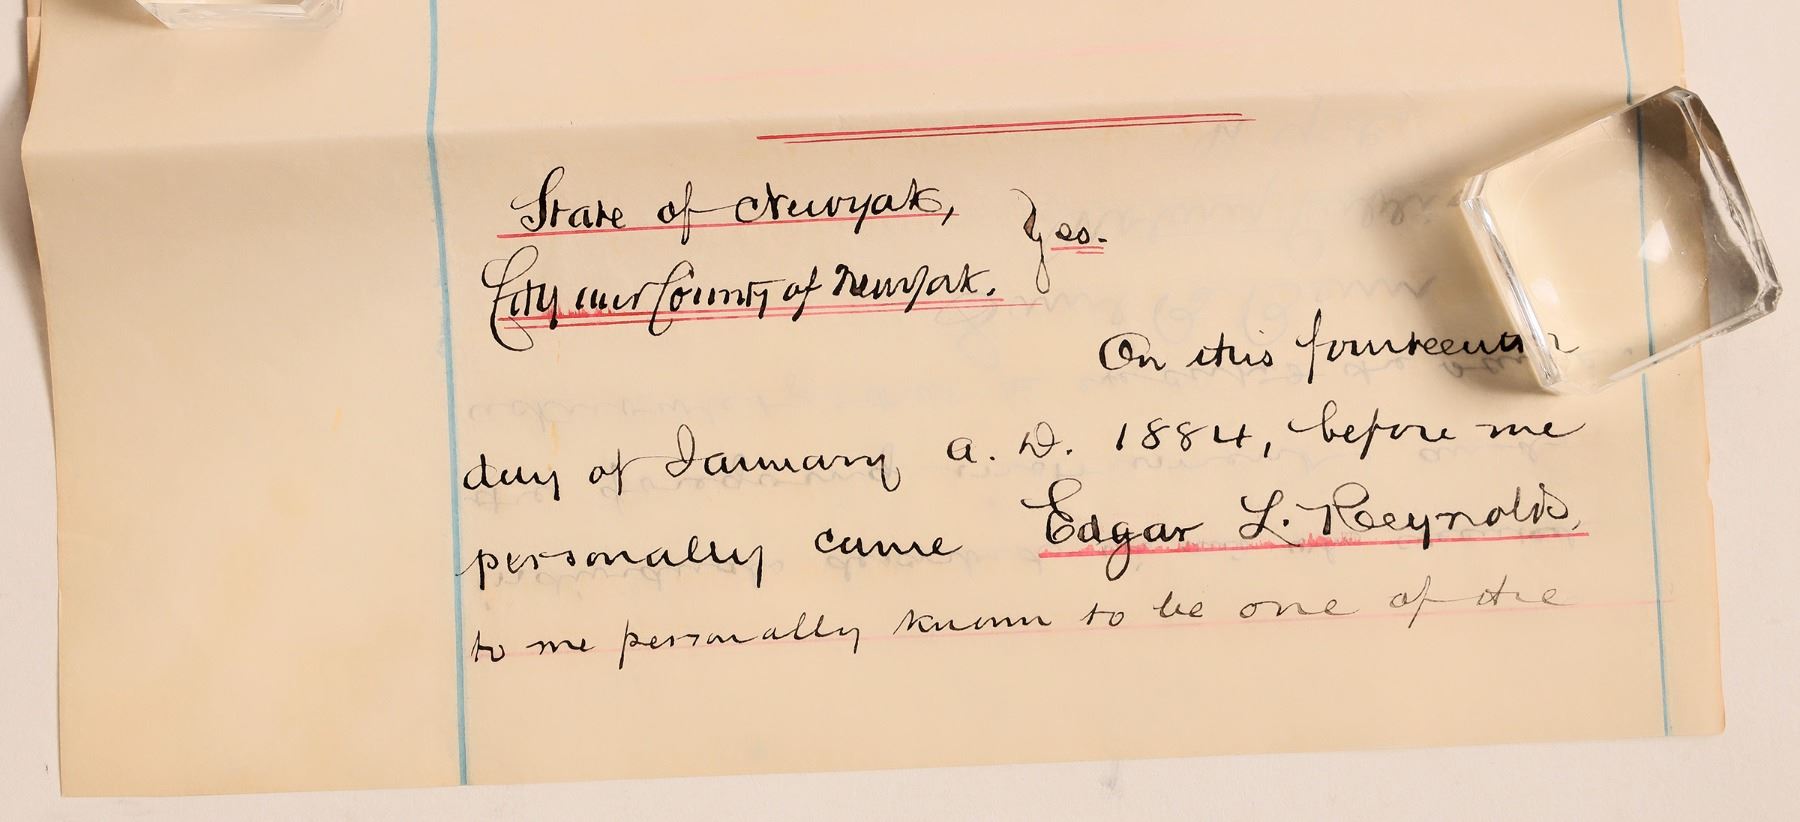 State of New York, } ss.
City and County of New York.
On this fourteenth
day of January A. D. 1884, before me
personally came Edgar L. Reynolds,
to me personally known to be one of the